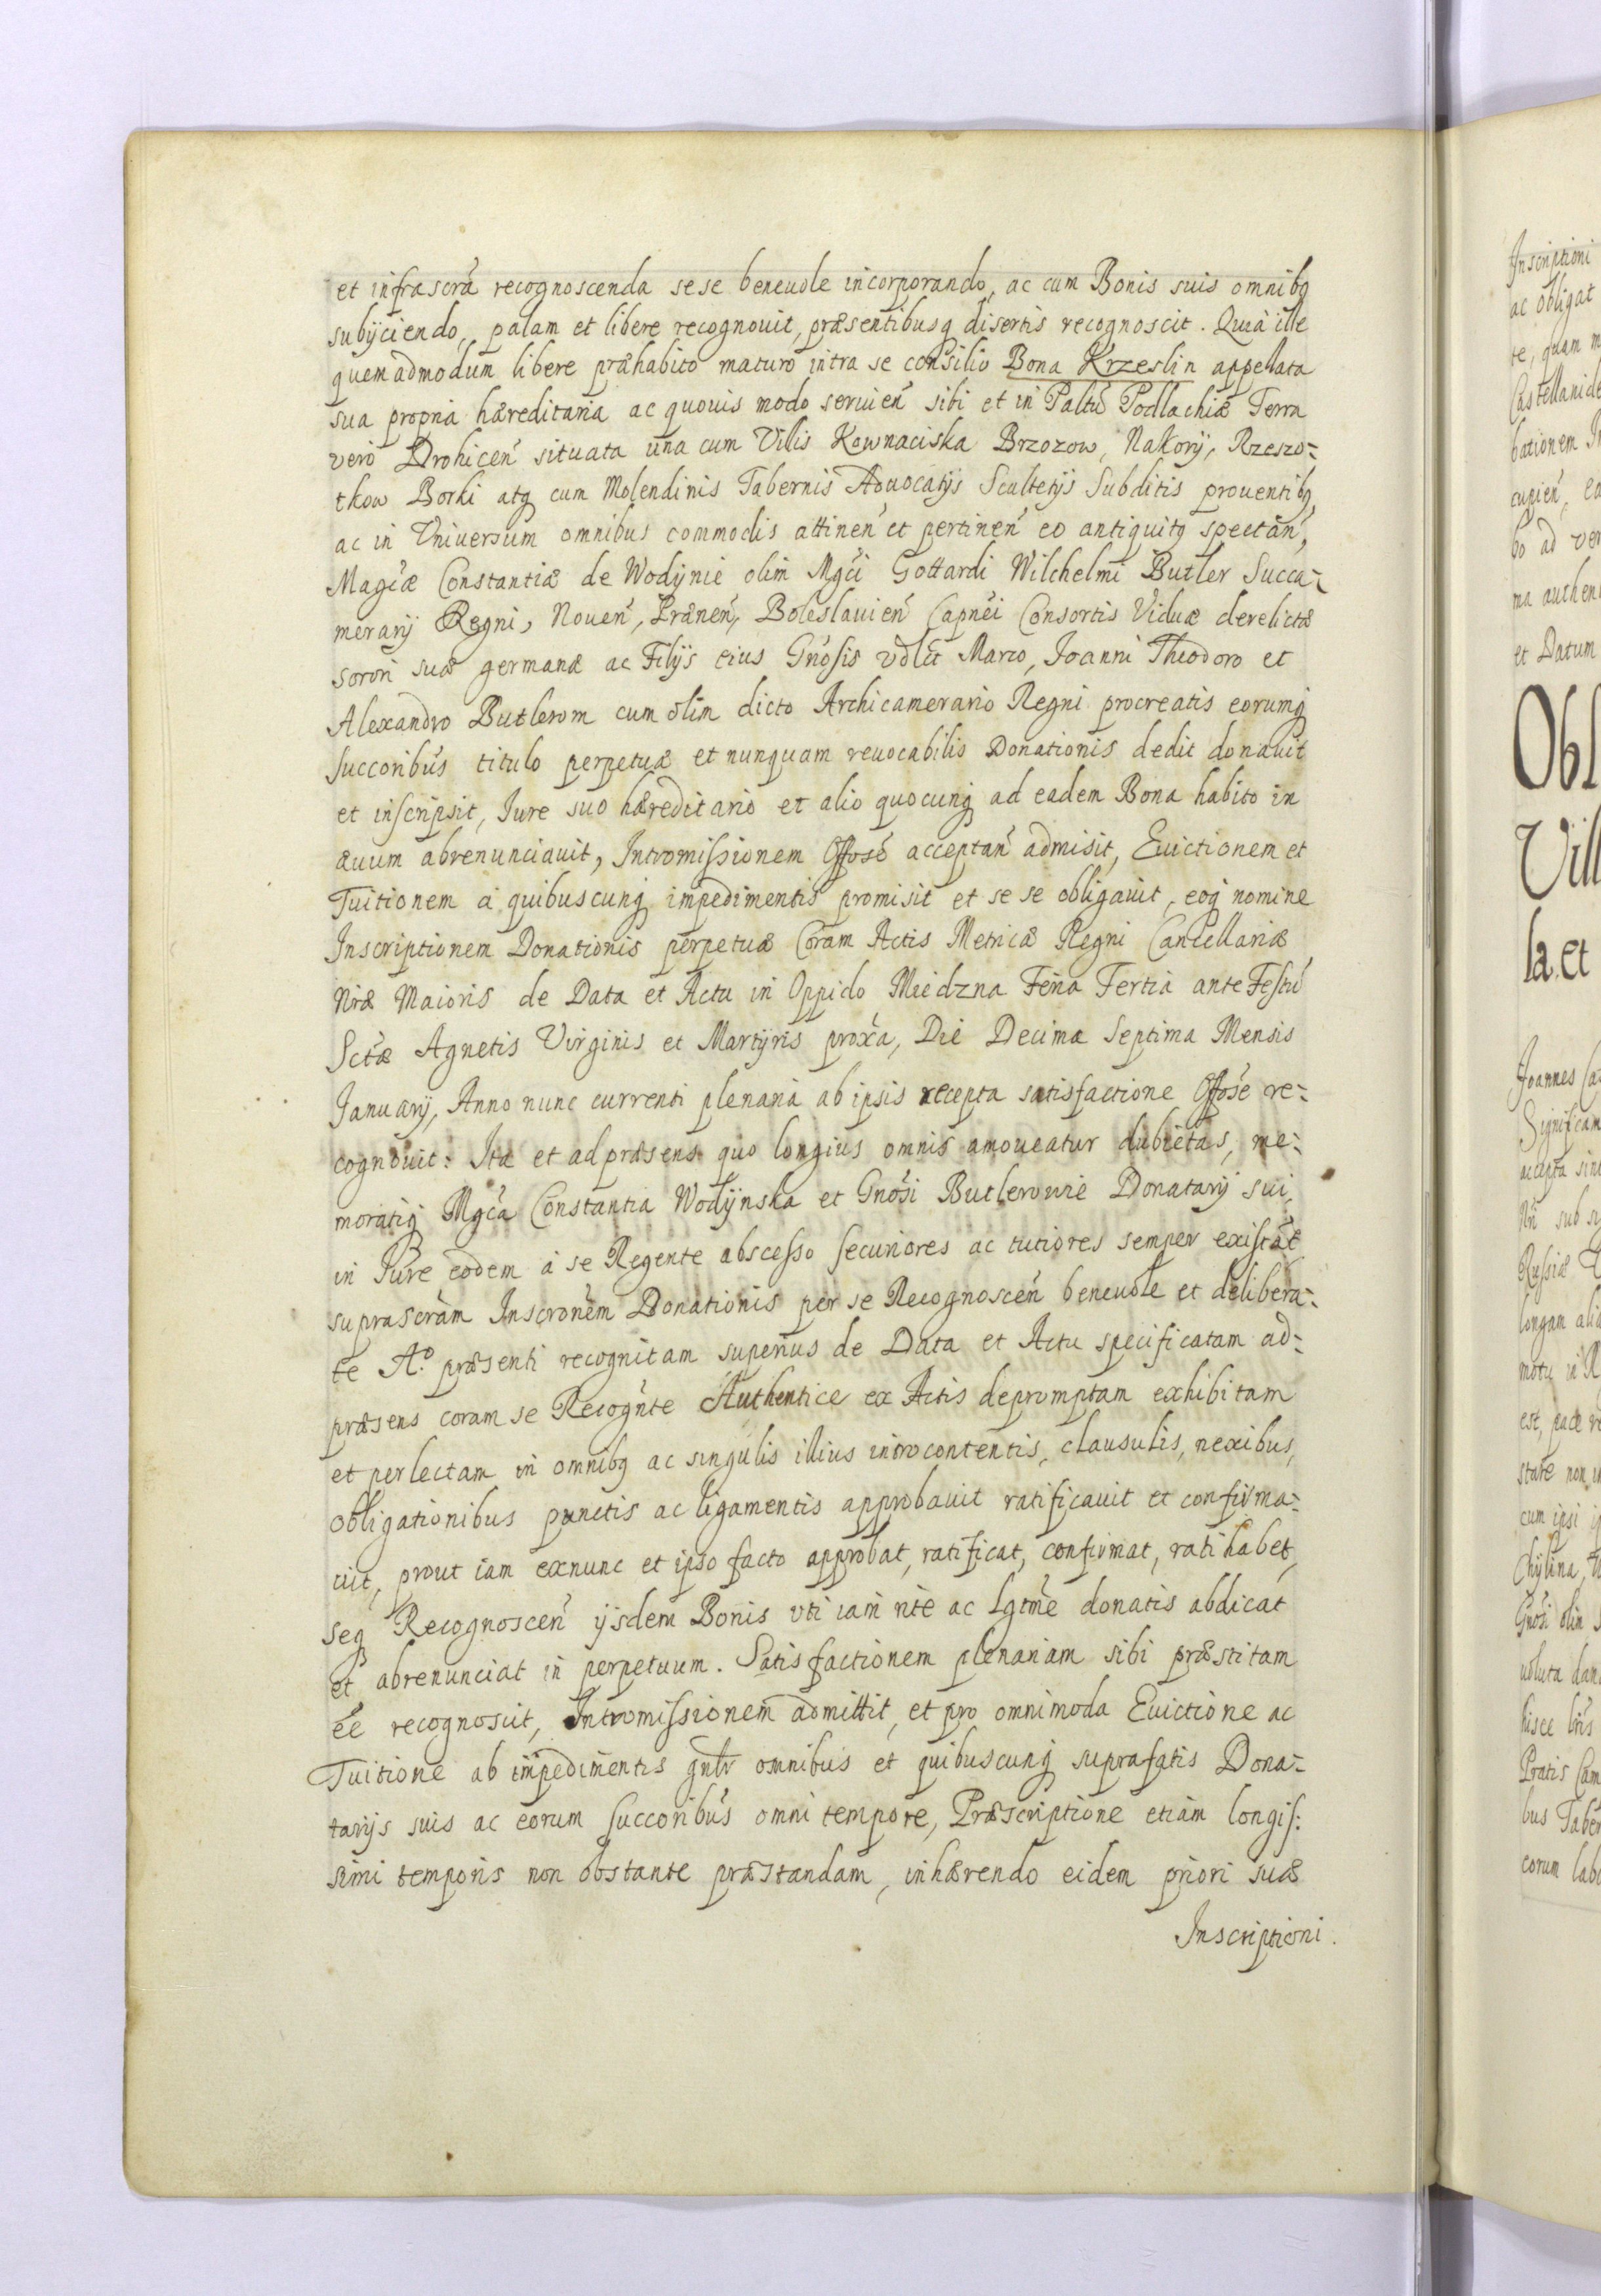 et infrascrá recognoscenda sese beneuole incorporando, ac cum Bonis suis omnibq
subÿciendo, palam et libere recognouit, præsentibusq disertis recognoscit. Quià ille
quemadmodum libere præhabito maturo intra se consilio Bona Krzeslin appellata
sua propria hæreditaria ac quouis modo seruień sibi et in Paltú Podlachiæ Terra
vero Drohiceń situata una cum Villis Kownaciska Brzozow, Nakorÿ, Rzeszo-
tkow Borki atq cum Molendinis Tabernis Aduocatÿs Scultetÿs Subditis prouentibq,
ac in Vniuersum omnibus commodis attineń et pertineń eo antiquitq spectań,
Magćæ Constantiæ de Wodÿnie olim Mgći Gottardi Wilchelmi Butler Succa-
merarÿ Regni, Noueń, Præneń, Boleslauień Capnéi Consortis Viduæ derelictæ
sorori suæ germanæ ac Filÿs eius Gnósis vólit Marco, Joanni Theodoro et
Alexandro Butlerom cum olim dicto Archicamerario Regni procreatis eorumq
succoribús titulo perpetuæ et nunquam reuocabilis Donationis dedit donauit
et inscripsit, Jure suo hæreditario et alio quocunq ad eadem Bona habito in
æuum abrenunciauit, Intromissionem Offosé acceptań admisit, Euictionem et
Tuitionem a quibuscunq impedimentis promisit et se se obligauit, eoq nomine
Inscriptionem Donationis perpetuæ Coram Actis Metricæ Regni Cancellariæ
Nræ Maioris de Data et Actu in Oppido Miedzna Feria Tertia ante Festú
Sctæ Agnetis Virginis et Martÿris proxá, Die Decima Septima Mensis
Januarÿ, Anno nunc currenti plenaria ab ipsis recepta satisfactione Offosé re-
cognouit: Ita et ad præsens quo longius omnis amoueatur dubietas, me-
moratiq Mgćá Constantia Wodÿnska et Gnósi Butlerowie Donatarÿ sui,
in Jure eodem á se Regente abscesso securiores ac tutiores semper existát
suprascrám Inscronem Donationis per se Recognosceń beneuole et delibera-
te A.º præsenti recognitam superius de Data et Actu specificatam ad-
præsens coram se Recognte Authentice ex Actis depromptam exhibitam
et perlectam in omnibq ac singulis illius introcontentis, clausulis, nexibus,
obligationibus punctis ac ligamentis approbauit ratificauit et confirma-
uit, prout iam exnunc et ipso facto approbat, ratificat, confirmat, ratihabet,
seq Recognosceń ÿsdem Bonis vti iam rite ac Lgtmé donatis abdicat
et abrenunciat in perpetuum. Satisfactionem plenariam sibi præstitam
éé recognoscit, Intromissionem admittit, et pro omnimoda Euictione ac
Tuitione ab impedimentis gnlr omnibus et quibuscunq suprafatis Dona-
tarÿs suis ac eorum succoribús omni tempore, Præscriptione etiam longis:
simi temporis non obstante præstandam, inhærendo eidem priori suæ
Inscriptioni.
Inscriptioni
ac obligat
te, quam
Castellanide
bationem
cupień,
bo ad
ma authen
et Datum
Obl
Vill
la et
Joannes
Significam
accepta
sub
Russiæ
longam
motu
est, pace
stare non
cum ipsi
Chÿlina,
Gnósi olim
uoluta
hisce
Pratis
bus Taber
eorum